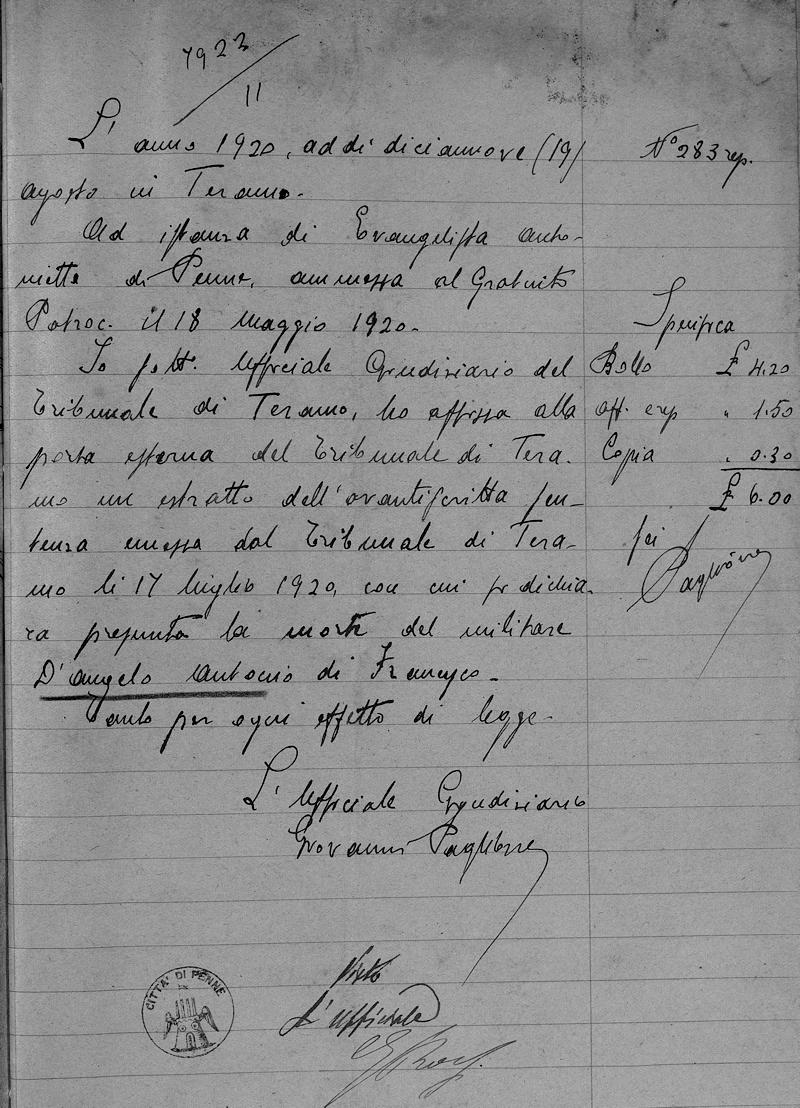 1923
11
L' anno 1920, addì diciannove (19)
N° 283 rep.
agosto in Teramo.
Ad istanza di Evangelista Anto-
nietta di Penne, ammessa al Gratuito
Patroc. il 18 Maggio 1920.
Specifica
Io sott. Ufficiale Giudiziario del
Bollo £ 4.20
Tribunale di Teramo, ho affisso alla
" 1.50
porta esterna del Tribunale di Tera-
Copia " 0.30
mo un estratto dell'avantiscritta sen-
£ 6.00
tenza emessa dal Tribunale di Tera-
sei
mo li 17 luglio 1920, con cui si dichia-
Paglione
ra presunta la morte del militare
D'Angelo Antonio di Francesco.
Tanto per ogni effetto di legge.
L'Ufficiale Giudiziario
Giovanni Paglione
CITTA' DI PENNE
Visto
L'ufficiale